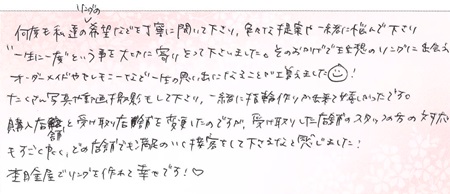 リングの
何度も私達の希望などを丁寧に聞いて下さり、色々なご提案や一緒に悩んで下さり
"一生に一度"という事を大切に寄りそって下さいました。そのおかげで理想のリングに出会え
オーダーメイドやセレモニーなどで一生の思い出になることが出来ました!
たくさん写真や動画撮影もして下さり、一緒に指輪作りが出来て楽しかったです。
購入店舗と受け取り店舗を変更したのですが、受け取りした店舗のスタッフの方の対応
もすごく良く、どの店舗でも満足のいく接客をして下さるなと感じました!
杢目金屋でリングを作れて幸せです!♡